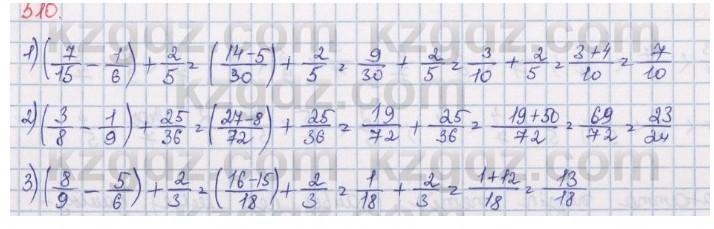 510.
1) (7/15 - 1/6) + 2/5 = (14-5/30) + 2/5 = 9/30 + 2/5 = 3/10 + 2/5 = 3+4/10 = 7/10
2) (3/8 - 1/9) + 25/36 = (27-8/72) + 25/36 = 19/72 + 25/36 = 19+50/72 = 69/72 = 23/24
3) (8/9 - 5/6) + 2/3 = (16-15/18) + 2/3 = 1/18 + 2/3 = 1+12/18 = 13/18